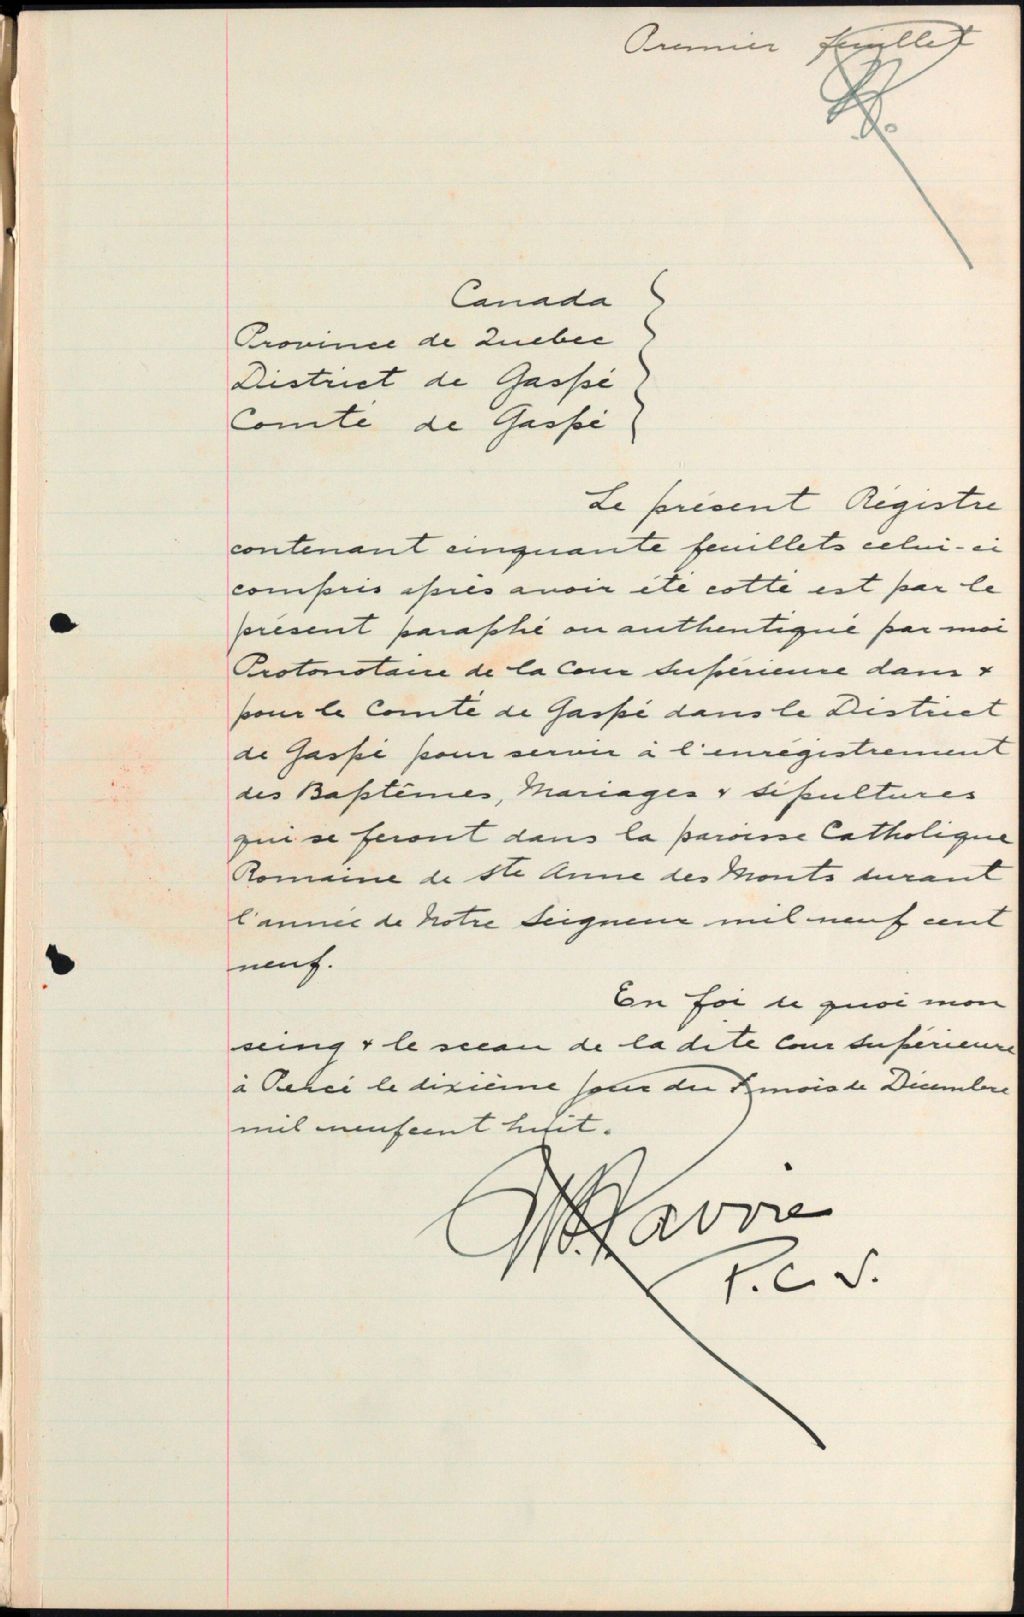 Premier feuillet
Canada
Province de Quebec
District de Gaspé
Comté de Gaspé
Le présent Régistre
contenant cinquante feuillets celui-ci
compris après avoir été cotté est par le
présent paraphé ou authentiqué par moi
Protonotaire de la Cour Supérieure dans &
pour le Comté de Gaspé dans le District
de Gaspé pour servir à l'enrégistrement
des Baptêmes, Mariages & Sépultures
qui se feront dans la paroisse Catholique
Romaine de Ste Anne des Monts durant
l'année de Notre Seigneur mil neuf cent
neuf.
En foi de quoi mon
seing & le sceau de la dite Cour Supérieure
à Percé le dixième jour du mois de Décembre
mil neufcent huit.
Savoie
P.C.S.